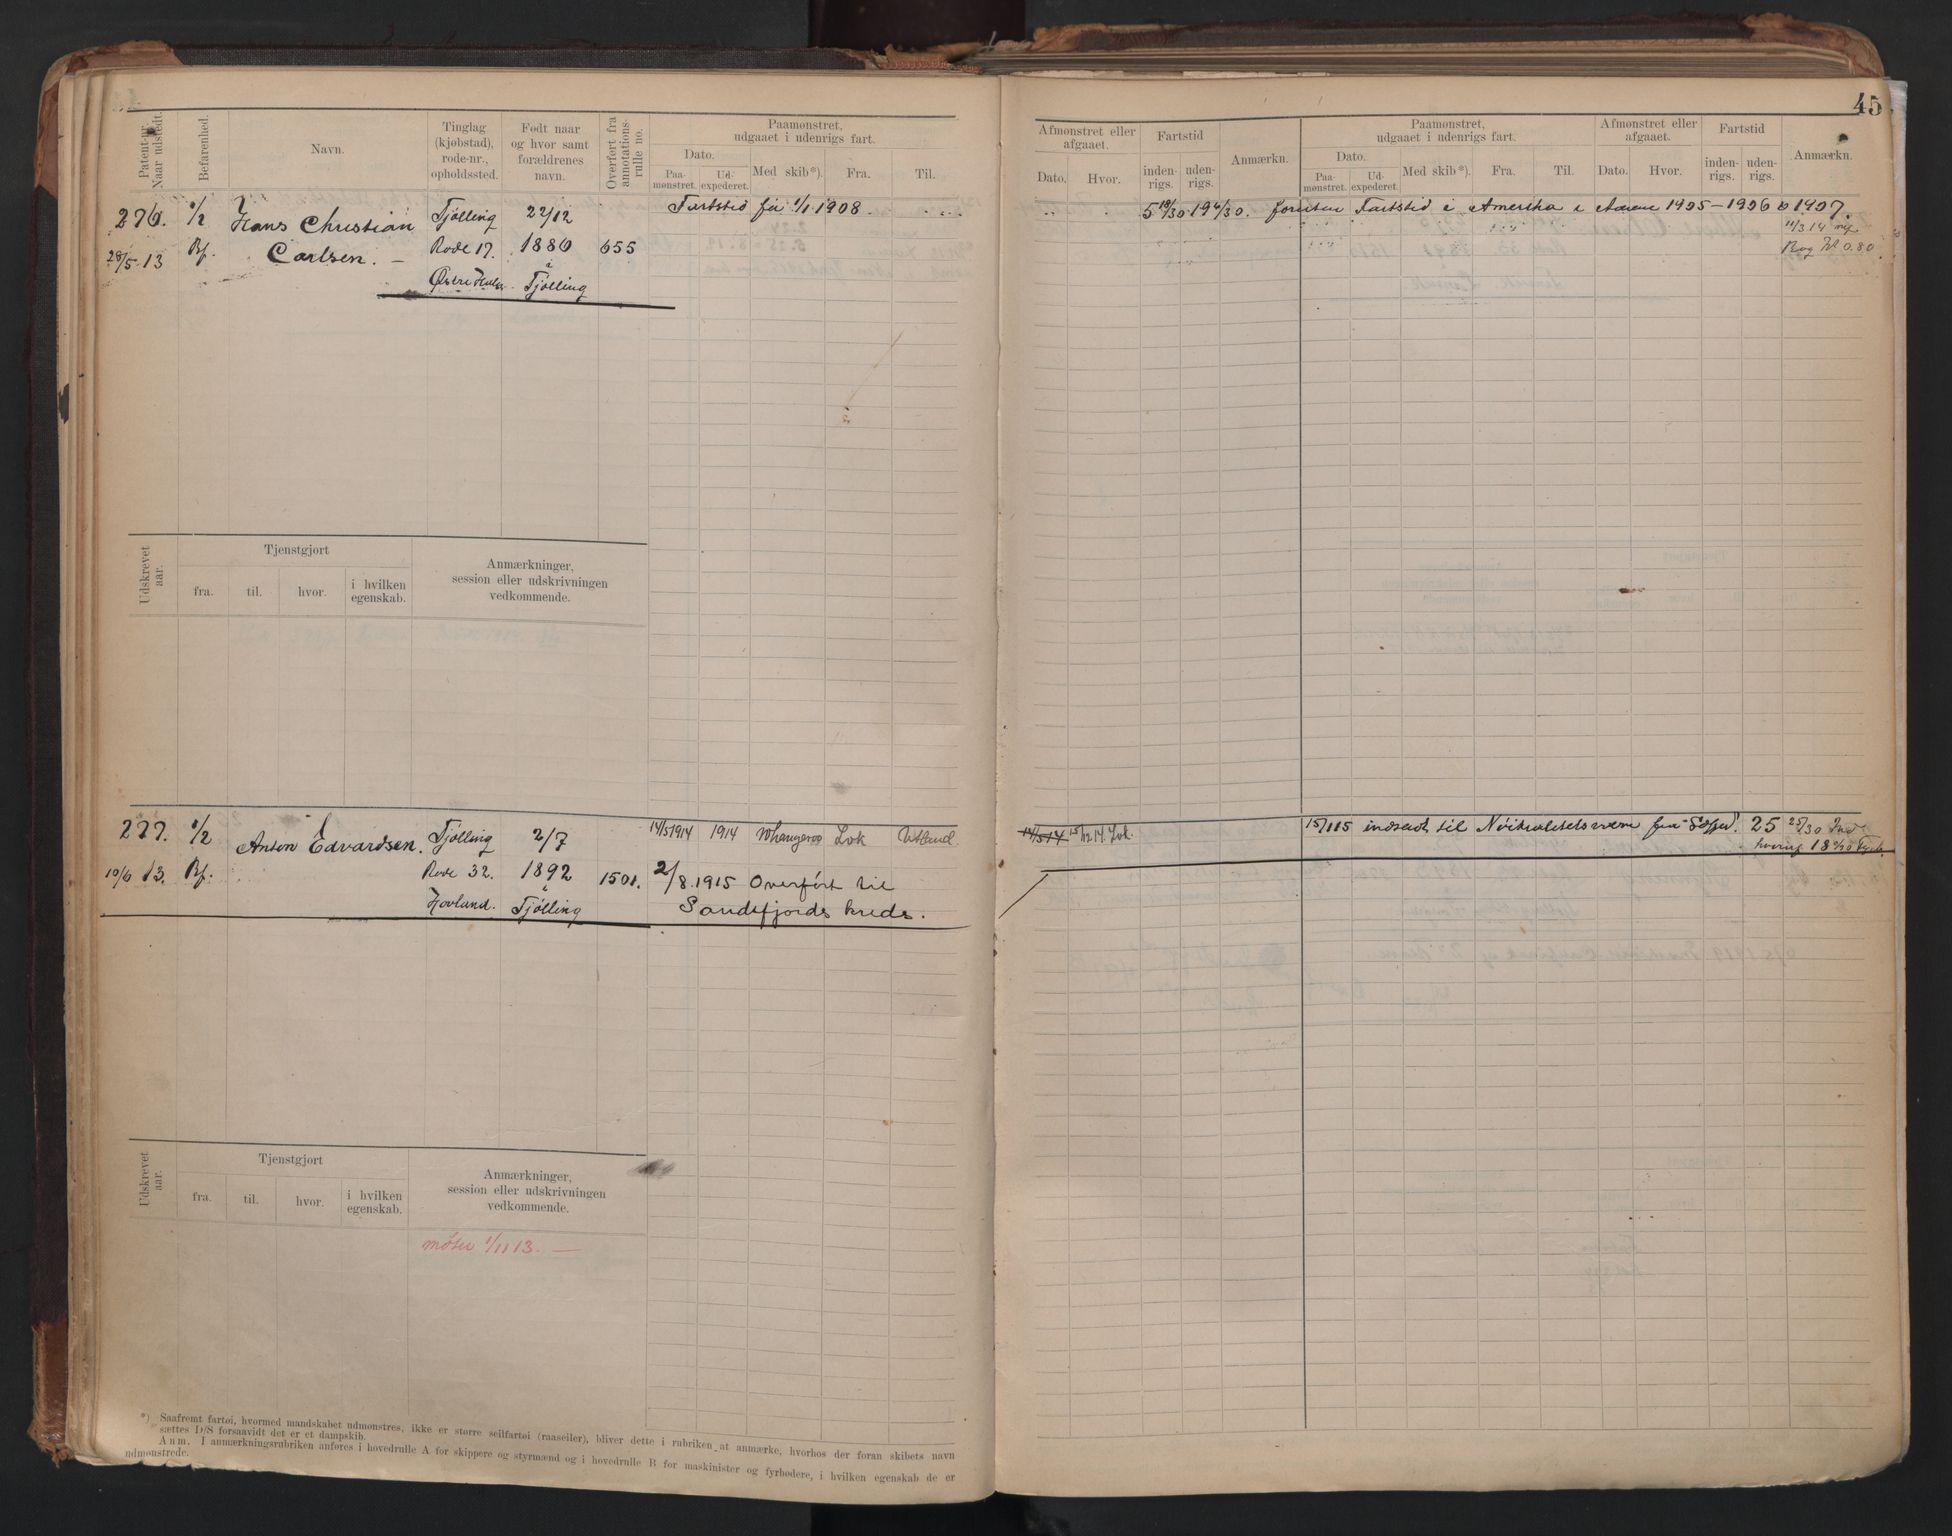 45
Patent-nr. Naar udstedt.
Befarenhed.
Navn.
Tinglag (kjøbstad), rode-nr., opholdssted.
Født naar og hvor samt forældrenes navn.
Overført fra annotations-rulle no.
Paamønstret, udgaaet i udenrigs fart.
Dato.
Paa-mønstret.
Ud-expederet.
Med skib*).
Fra.
Til.
Afmønstret eller afgaaet.
Dato.
Hvor.
Fartstid
inden-rigs.
uden-rigs.
Anmærkn.
Paamønstret, udgaaet i udenrigs fart.
Dato.
Paa-mønstret.
Ud-expederet.
Med skib*).
Fra.
Til.
Afmønstret eller afgaaet.
Dato.
Hvor.
Fartstid
inden-rigs.
uden-rigs.
Anmærkn.
276. 1/2 Hans Christian Tjølling 22/12 Fartstid før 1/1 1908. 5 18/30 19 6/30. foruten Fartstid i Amerika i Aarene 1905-1906 o 1907.
28/5 13 Bf. Carlsen. Rode 17. 1880 655 11/3 14
Tjølling
Udskrevet aar.
Tjenstgjort
fra.
til.
hvor.
i hvilken egenskab.
Anmærkninger, session eller udskrivningen vedkommende.
277. 1/2 Anton Edvardsen. Tjølling 2/7 14/5 1914 1914 Whangeroo Lvk Utland 14/5 14 15/12 14. Lvk. 15/1 15 indsendt til 25 25/30
10/6 13. Bf. Rode 32. 1892 1501. 2/8. 1915 Overført til
Hovland. Tjølling Sandefjords kreds.
Udskrevet aar.
Tjenstgjort
fra.
til.
hvor.
i hvilken egenskab.
Anmærkninger, session eller udskrivningen vedkommende.
møter 1/11 13. —
*) Saafremt fartøi, hvormed mandskabet udmønstres, ikke er større seilfartøi (raaseiler), bliver dette i rubriken at anmærke, hvorhos der foran skibets navn
sættes D/S forsaavidt det er et dampskib.
Anm. I anmærkningsrubriken anføres i hovedrulle A for skippere og styrmænd og i hovedrulle B for maskinister og fyrbødere, i hvilken egenskab de er
udmønstrede.